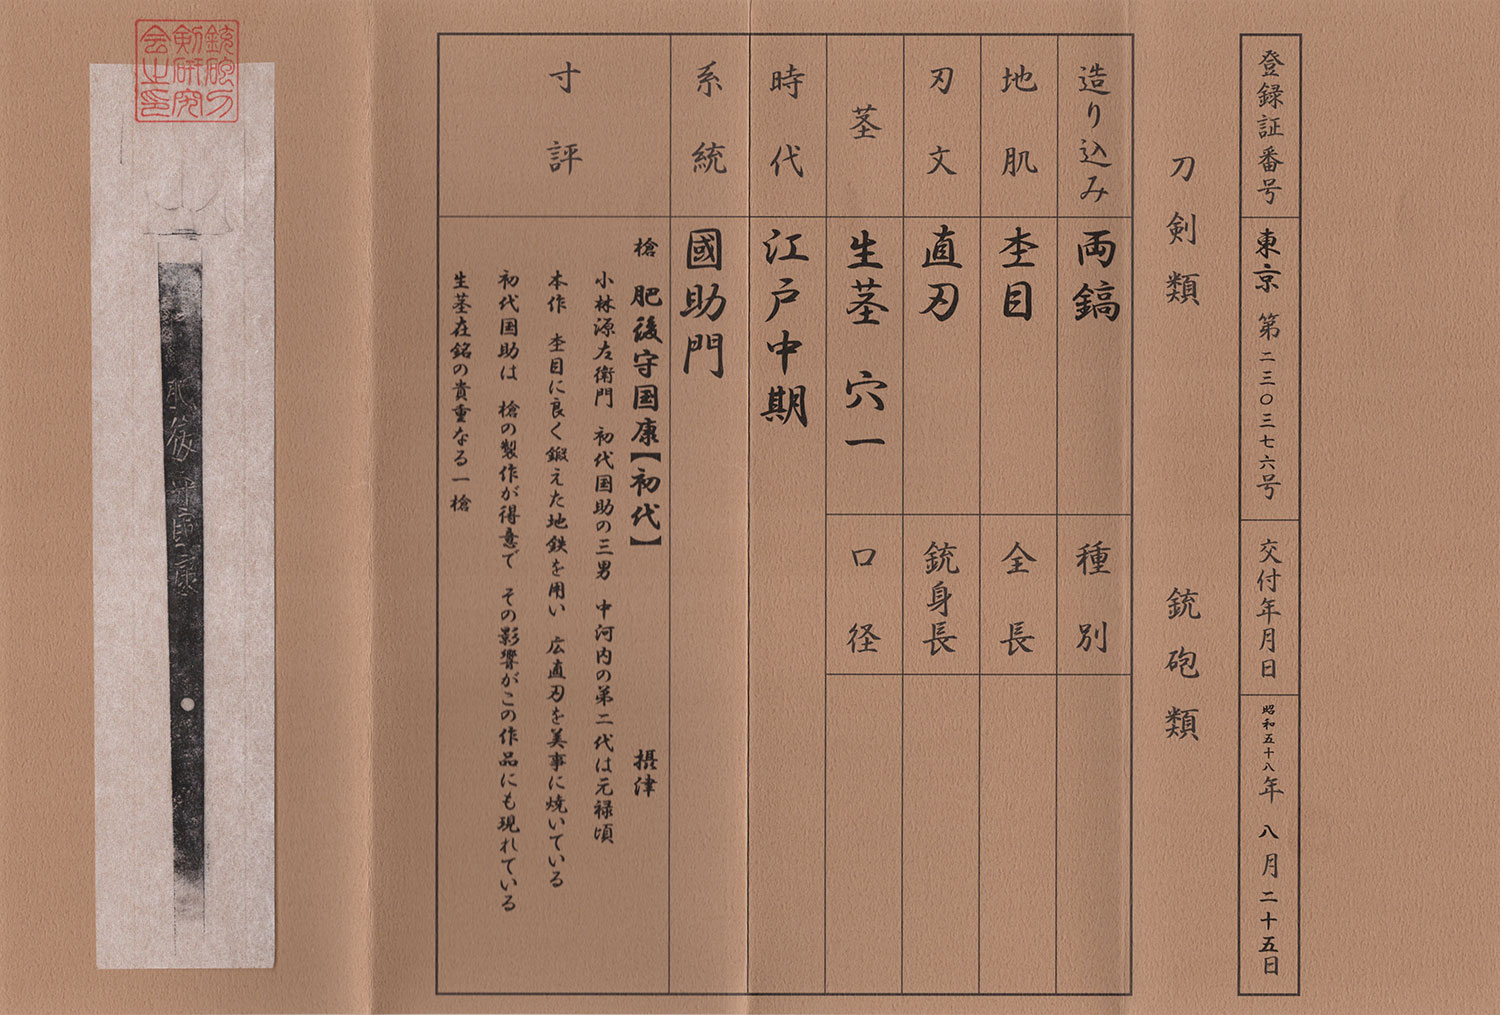 登録証番号 東京 第二三〇三七六号 交付年月日 昭和五十八年 八月二十五日
刀剣類 銃砲類
造り込み 両鎬 種別
地肌 杢目 全長
刃文 直刃 銃身長
茎 生茎 穴一 口径
時代 江戸中期
系統 國助門
寸評
槍 肥後守国康【初代】 摂津
小林源左衛門 初代国助の三男 中河内の第二代は元禄頃
本作 杢目に良く鍛えた地鉄を用い 広直刃を美事に焼いている
初代国助は 槍の製作が得意で その影響がこの作品にも現れている
生茎在銘の貴重なる一槍
銃砲刀
剣研究
会之印
肥後守國康